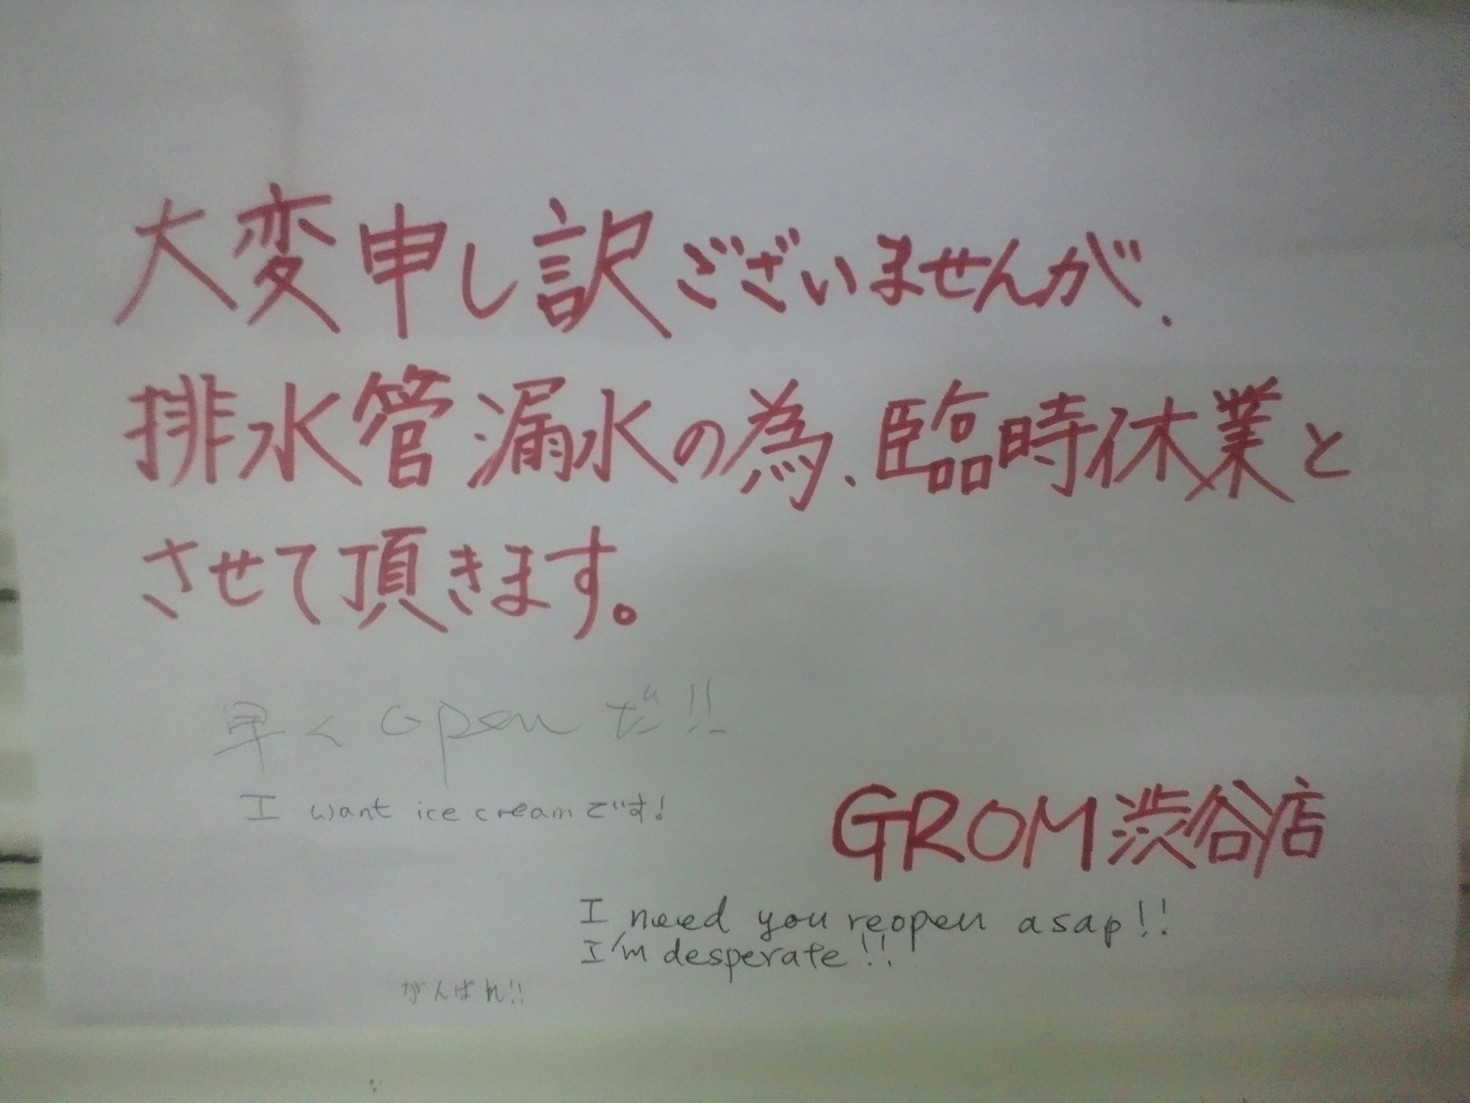 大変申し訳ございませんが、
排水管漏水の為、臨時休業と
させて頂きます。
早く open だ!!
I want ice cream です!
GROM 渋谷店
I need you reopen asap!!
I'm desperate!!
がんばれ!!